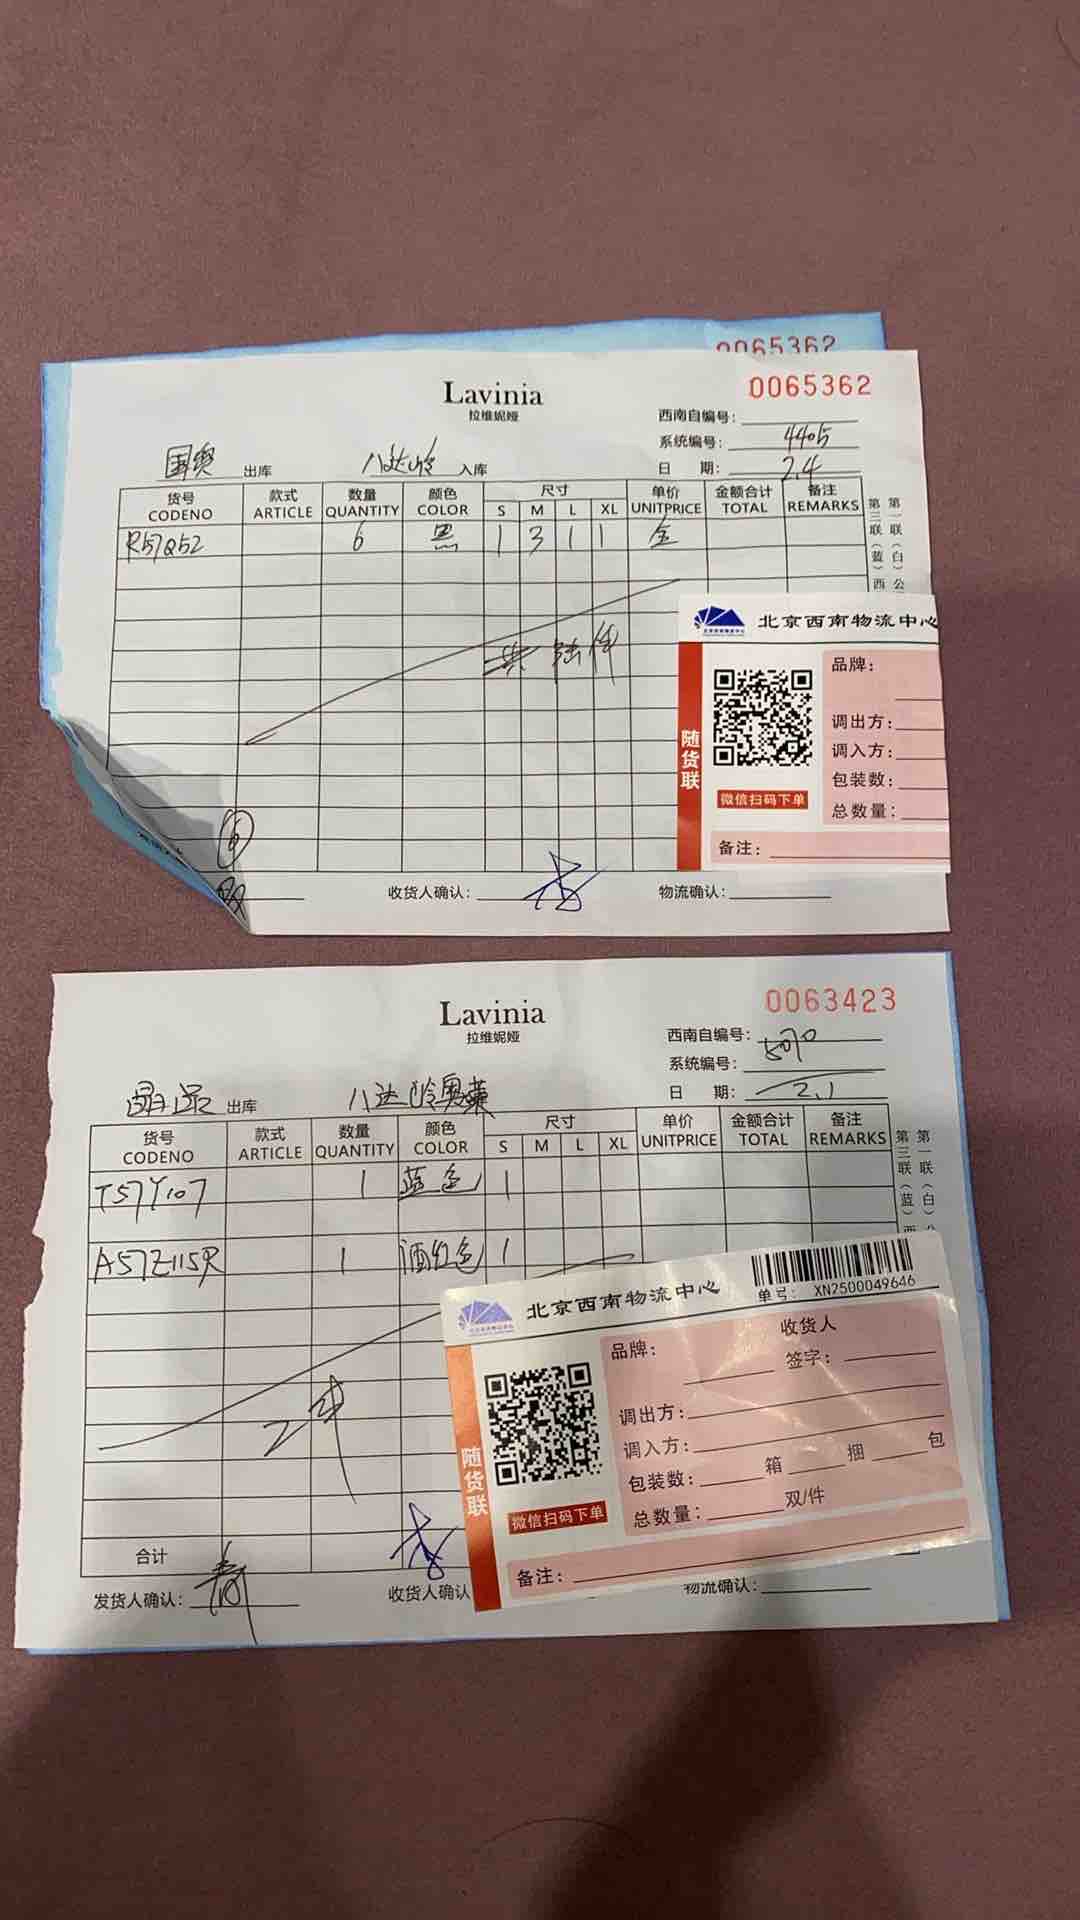 0065362
Lavinia
0065362
拉维妮娅
西南自编号:
系统编号: 4405
国奥 出库 八达岭 入库
日 期: 2.4
货号 款式 数量 颜色 尺寸 单价 金额合计 备注
CODENO ARTICLE QUANTITY COLOR S M L XL UNITPRICE TOTAL REMARKS
R57Q52 6 黑 1 3 1 1
第一联(白)公
第三联(蓝)西
共陆件
北京西南物流中心
品牌:
调出方:
调入方:
包装数:
总数量:
随货联
微信扫码下单
备注:
6
收货人确认:
物流确认:
Lavinia
0063423
拉维妮娅
西南自编号:
系统编号: 5070
出库 八达岭奥莱
日 期: 2.1
货号 款式 数量 颜色 尺寸 单价 金额合计 备注
CODENO ARTICLE QUANTITY COLOR S M L XL UNITPRICE TOTAL REMARKS
T57Y107 1 蓝色 1
A57Z115R 1 酒红色 1
第一联(白)
第三联(蓝)
2件
北京西南物流中心
单号: XN2500049646
品牌:
收货人
签字:
调出方:
调入方:
包装数: 箱 捆 包
总数量: 双/件
随货联
微信扫码下单
备注:
合计
发货人确认:
收货人确认
物流确认: